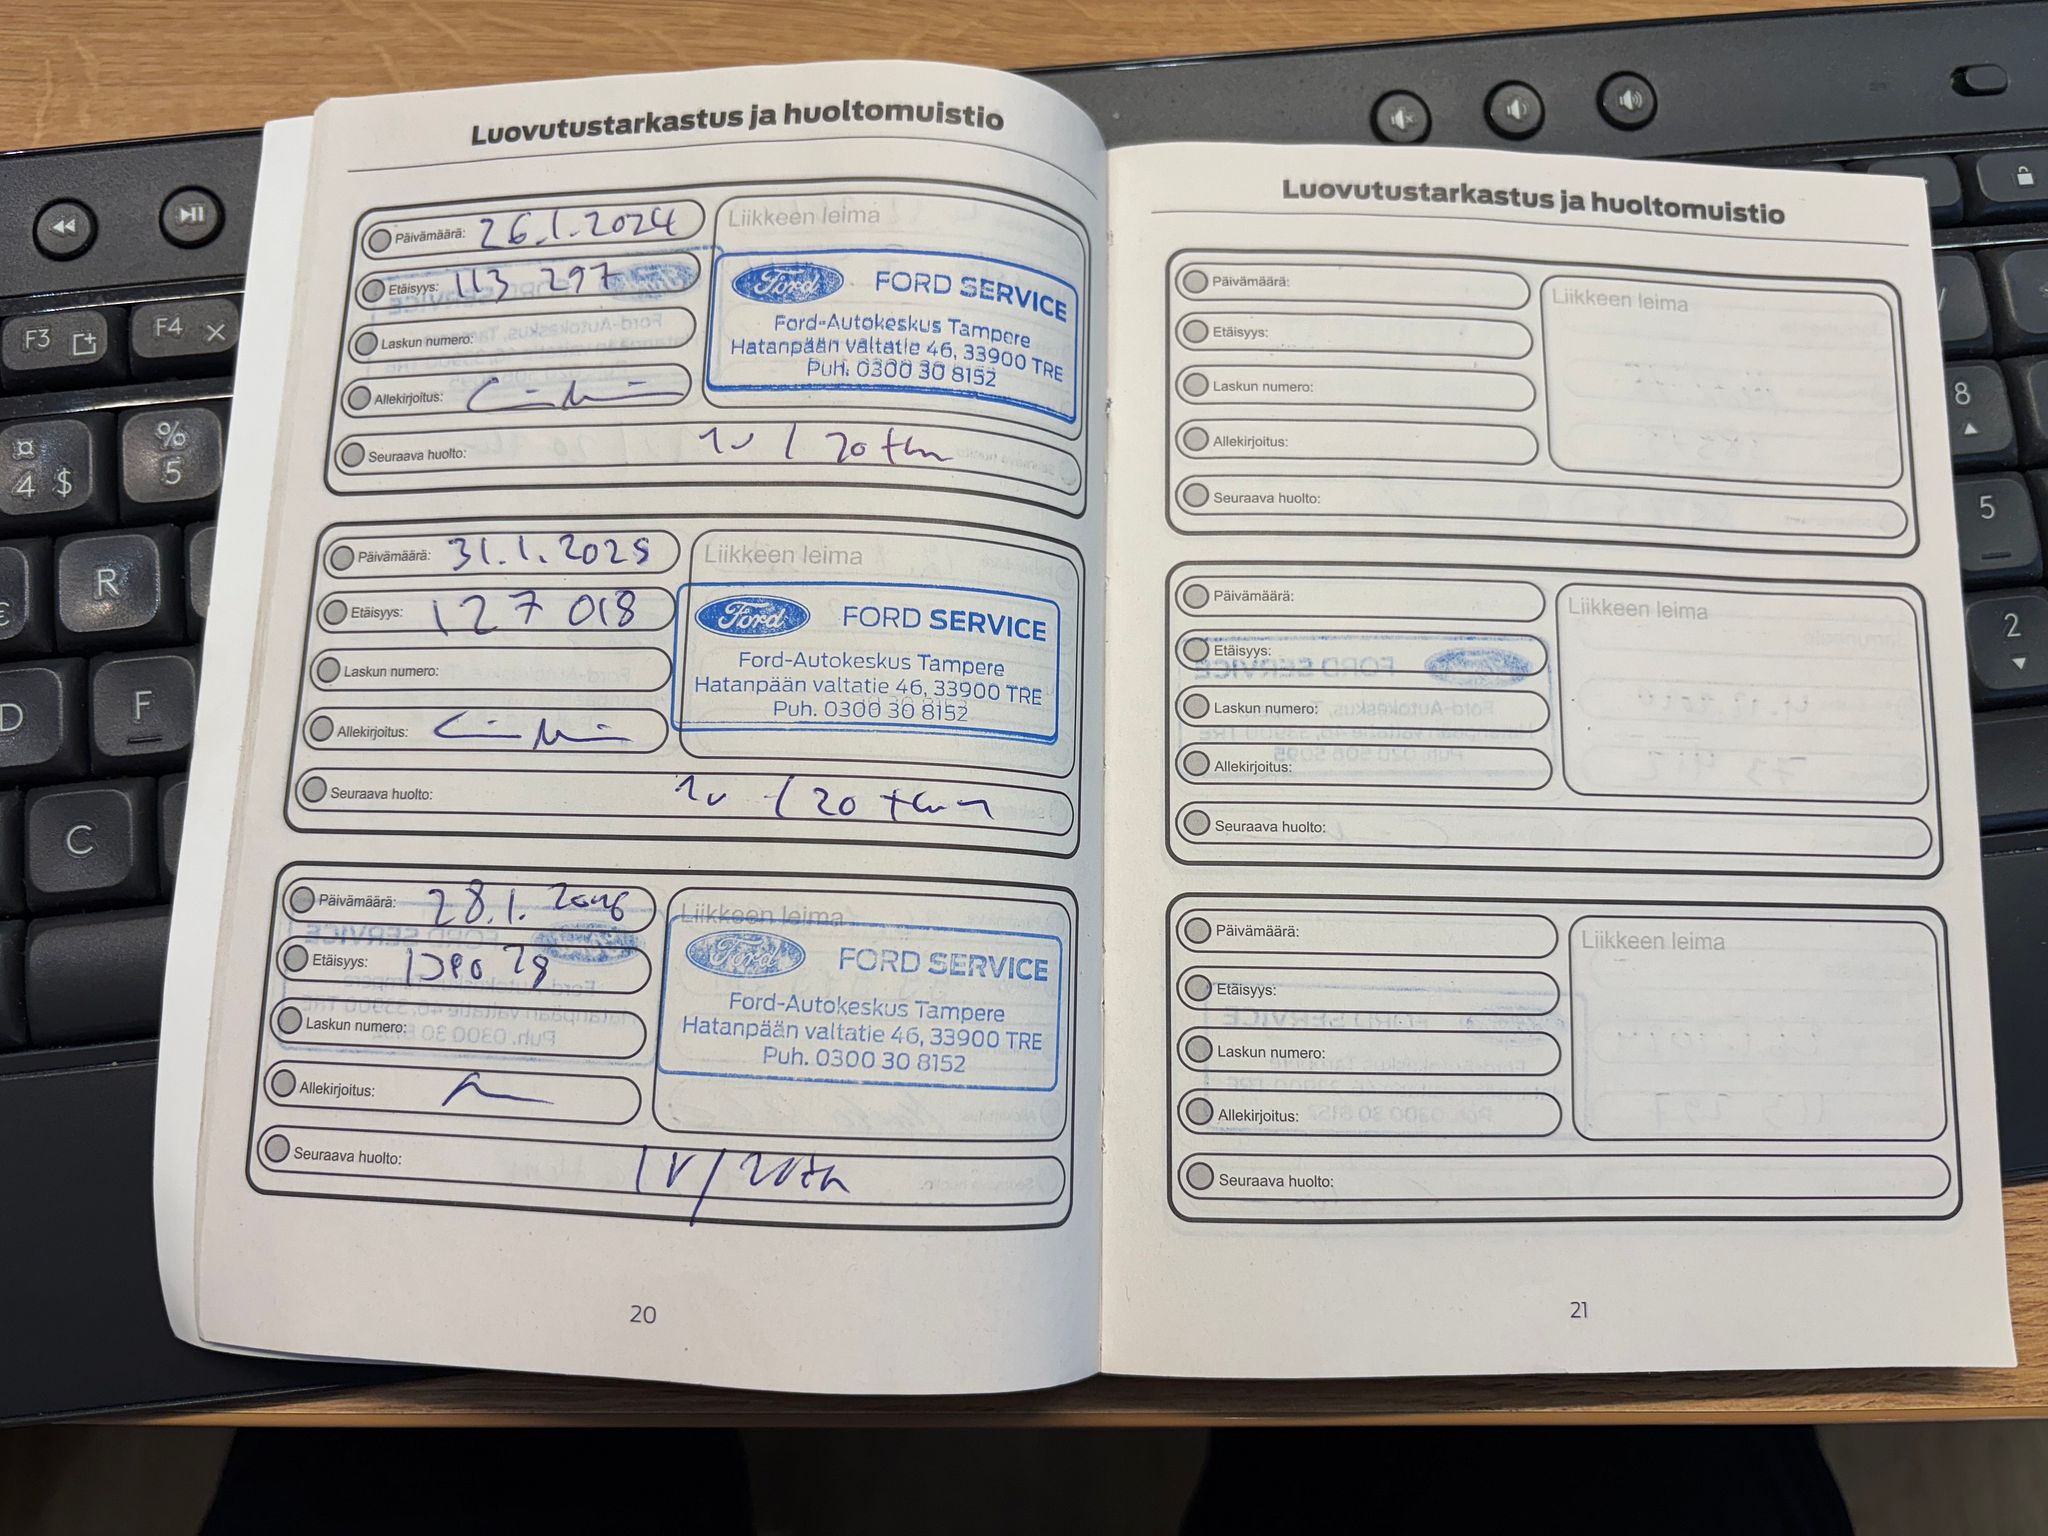 Luovutustarkastus ja huoltomuistio
Päivämäärä: 26.1.2024
Etäisyys: 113 297
Laskun numero:
Allekirjoitus:
Liikkeen leima
Ford FORD SERVICE
Ford-Autokeskus Tampere
Hatanpään valtatie 46, 33900 TRE
Puh. 0300 30 8152
Seuraava huolto: 1v / 20 tkm
Päivämäärä: 31.1.2025
Etäisyys: 127 018
Laskun numero:
Allekirjoitus:
Liikkeen leima
Ford FORD SERVICE
Ford-Autokeskus Tampere
Hatanpään valtatie 46, 33900 TRE
Puh. 0300 30 8152
Seuraava huolto: 1v / 20 tkm
Päivämäärä: 28.1.2026
Etäisyys:
Laskun numero:
Allekirjoitus:
Liikkeen leima
Ford FORD SERVICE
Ford-Autokeskus Tampere
Hatanpään valtatie 46, 33900 TRE
Puh. 0300 30 8152
Seuraava huolto: 1v/20tk
20
Luovutustarkastus ja huoltomuistio
Päivämäärä:
Etäisyys:
Laskun numero:
Allekirjoitus:
Liikkeen leima
Seuraava huolto:
Päivämäärä:
Etäisyys:
Laskun numero:
Allekirjoitus:
Liikkeen leima
Seuraava huolto:
Päivämäärä:
Etäisyys:
Laskun numero:
Allekirjoitus:
Liikkeen leima
Seuraava huolto:
21
F3
F4
¤ 4 $
% 5
R
D
F
C
8
5
2